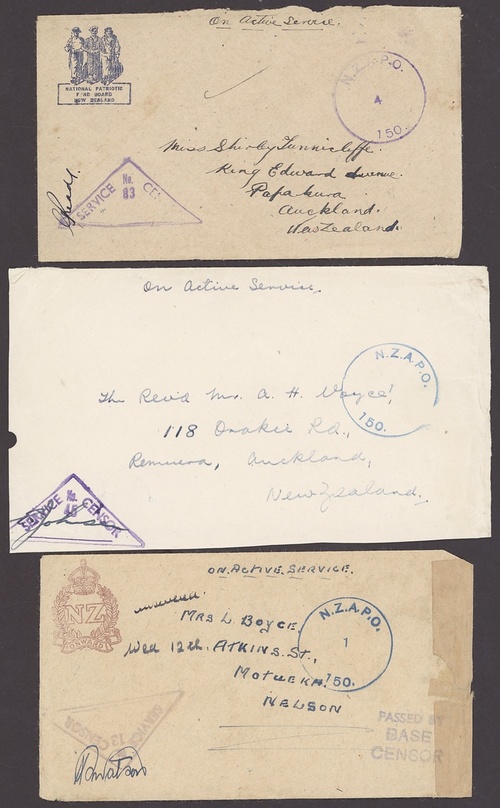 On Active Service.
NATIONAL PATRIOTIC
FUND BOARD
NEW ZEALAND
N.Z.A.P.O.
4
150.
Miss Shirley Tunnicliffe.
King Edward Avenue.
Papakura
Auckland.
New Zealand.
SERVICE No. 83 CE
On Active Service.
N.Z.A.P.O.
150.
The Rev'd Mr. A. H. Voyce,
118 Orakei Rd.,
Remuera, Auckland,
New Zealand.
SERVICE No. 45 CENSOR
ON. ACTIVE. SERVICE.
NZ
ONWARD
N.Z.A.P.O.
1
150.
MRS L. BOYCE
Wed 12th. ATKINS. ST.,
MOTUEKA.
NELSON
SERVICE 13 CENSOR
PASSED BY
BASE
CENSOR